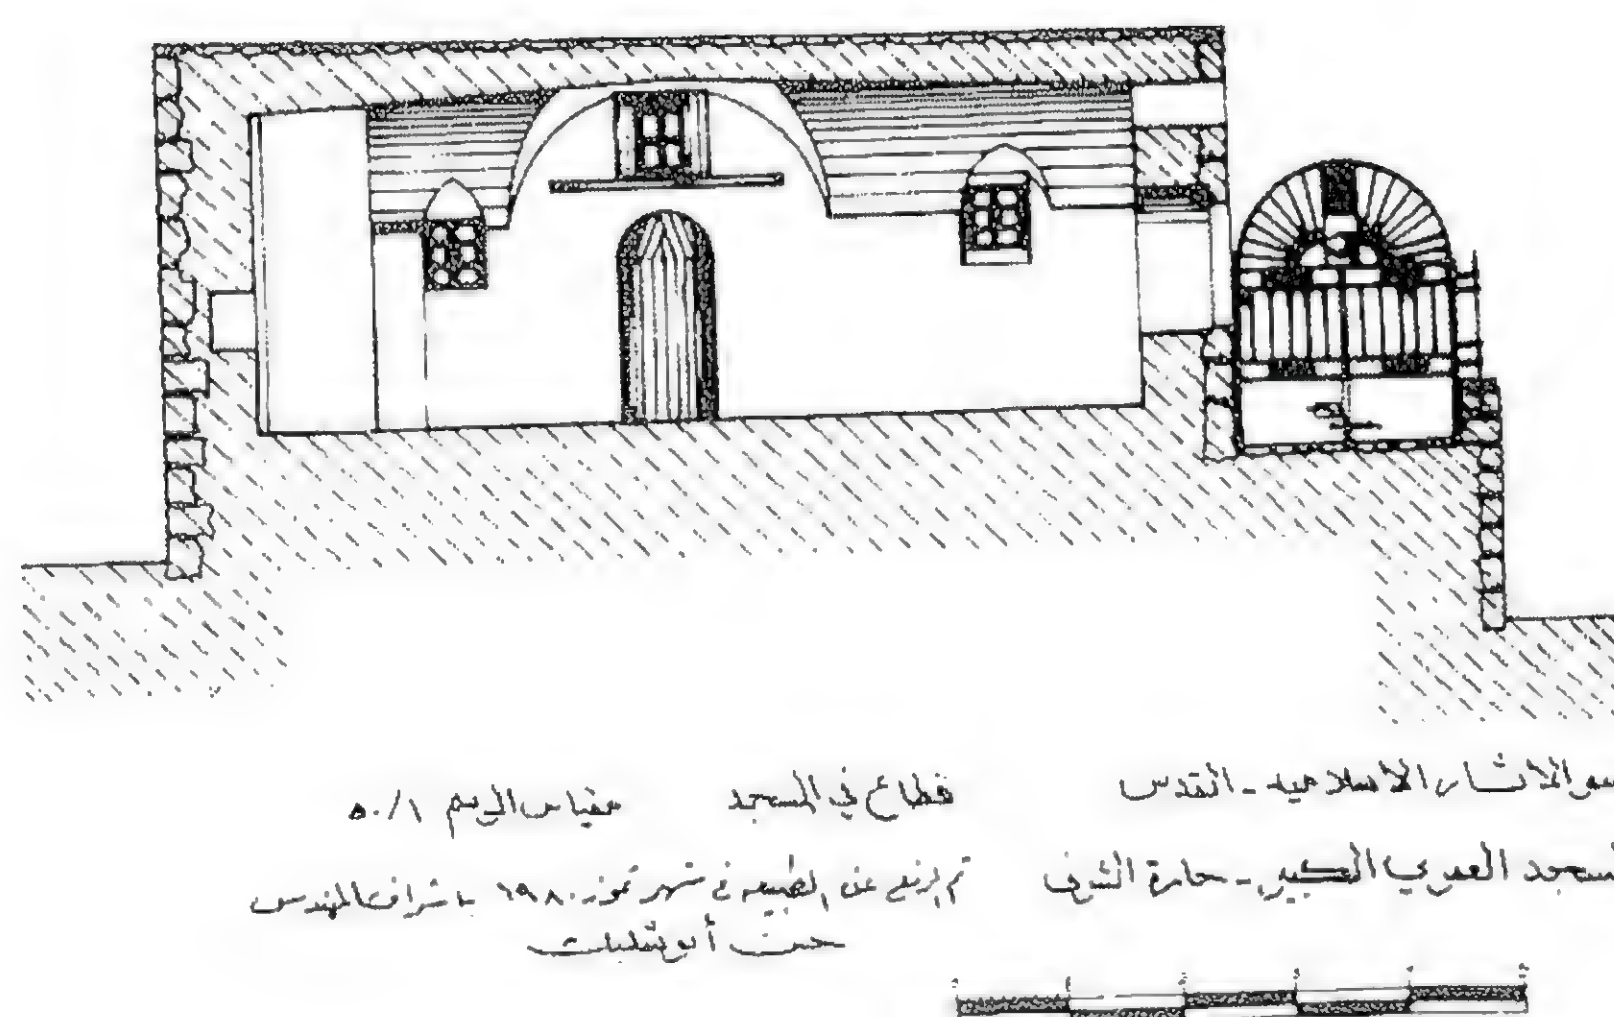 الاثار الاسلاميه - القدس
قطاع في المسجد
مقياس الرسم ١/٥٠
العمري الكبير - حارة الشرف
تم الرفع عن الطبيعه في شهر تموز ١٩٨٠ باشراف المهندس
حسن أبو شلبات